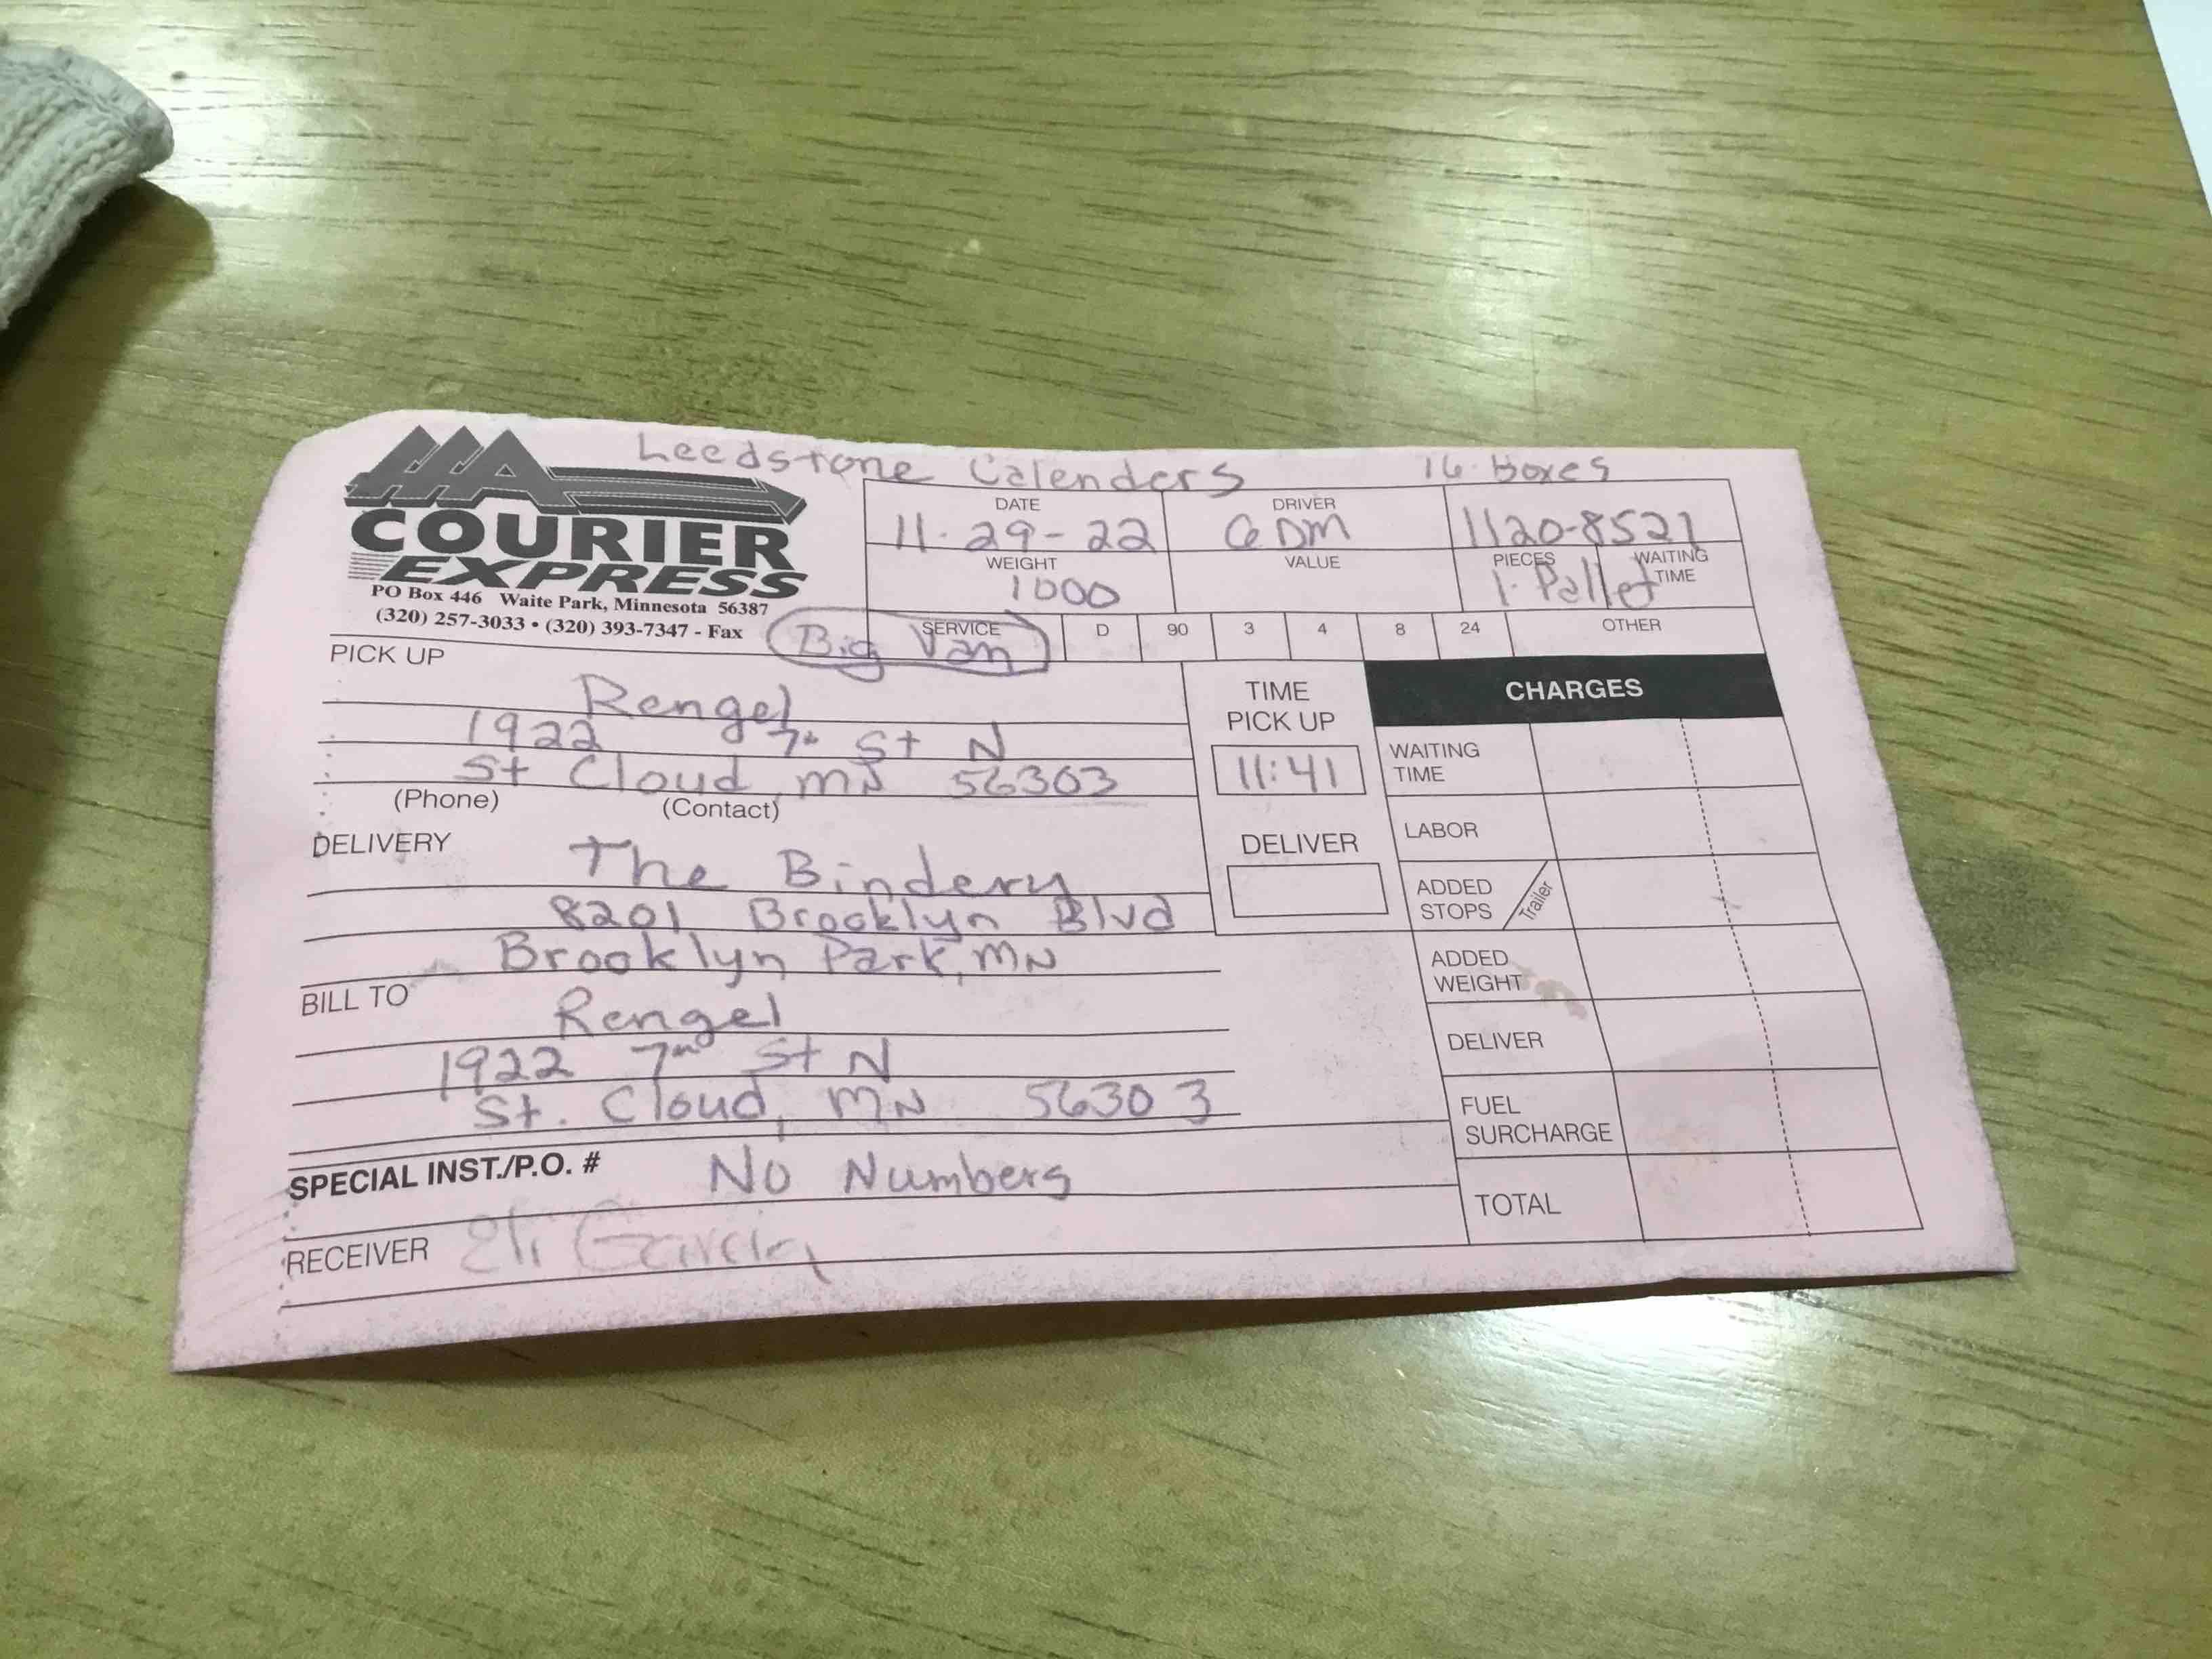 Leedstone Calenders 16 Boxes
AAA
COURIER
EXPRESS
PO Box 446 Waite Park, Minnesota 56387
(320) 257-3033 • (320) 393-7347 - Fax
DATE DRIVER
11-29-22 GDM 1120-8521
WEIGHT VALUE PIECES WAITING TIME
1000 1 Pallet
SERVICE D 90 3 4 8 24 OTHER
Big Van
PICK UP
Rengel
1922 7th St N
St Cloud, MN 56303
(Phone) (Contact)
TIME
PICK UP
11:41
DELIVERY
The Bindery
8201 Brooklyn Blvd
Brooklyn Park, MN
DELIVER
BILL TO
Rengel
1922 7th St N
St. Cloud, MN 56303
SPECIAL INST./P.O. # No Numbers
RECEIVER Eli Garcia
CHARGES
WAITING
TIME
LABOR
ADDED
STOPS Trailer
ADDED
WEIGHT
DELIVER
FUEL
SURCHARGE
TOTAL